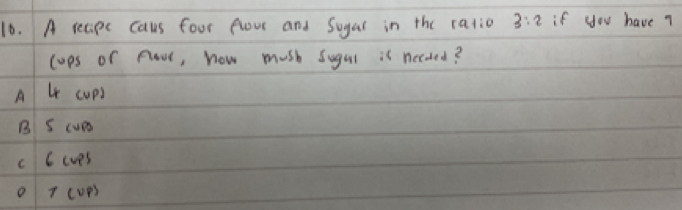 10. A recipe calls four flour and Sugar in the ratio 3:2 if you have 9
cups of flour, how mush sugar is needed?
A 4 cups
B 5 cups
C 6 cups
D 7 cups